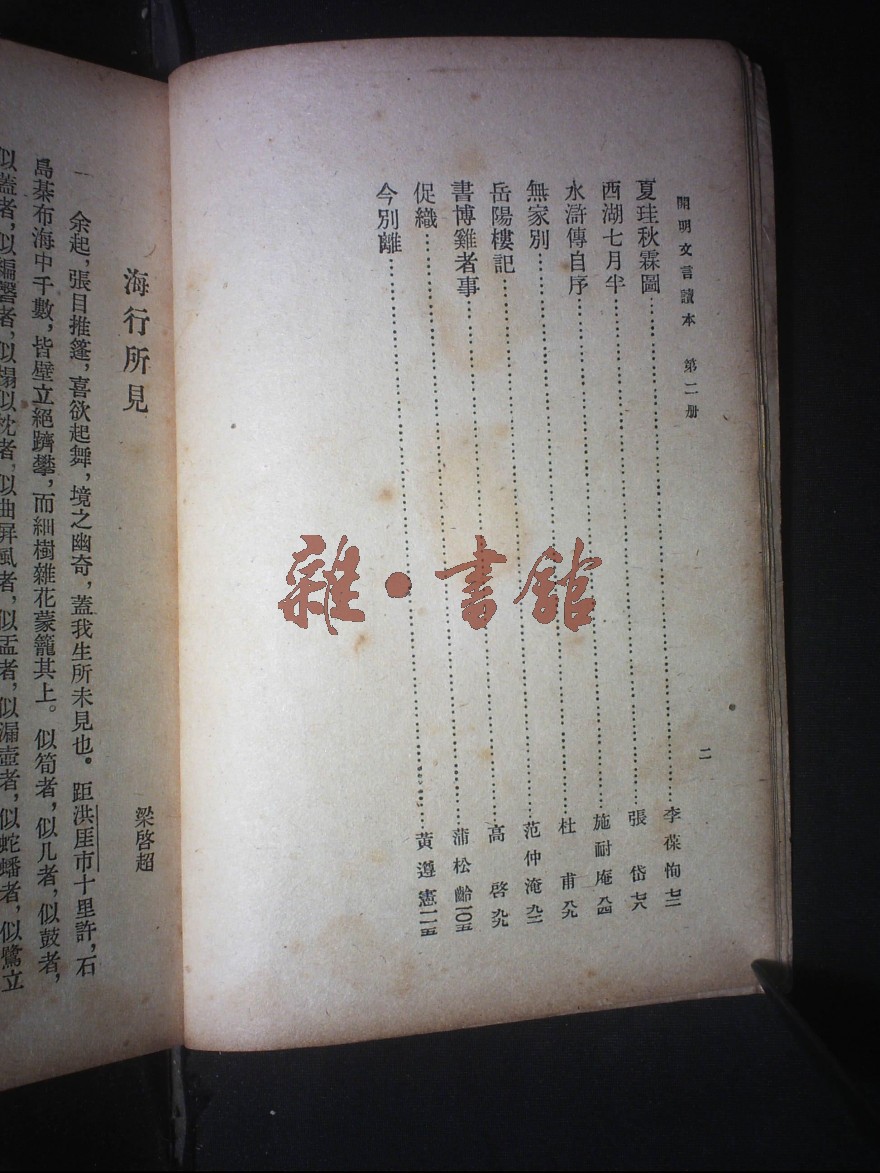 開明文言讀本 第二册
二
夏珪秋霖圖……李葆恂 七二
西湖七月半……張岱 七八
水滸傳自序……施耐庵 八四
無家別……杜甫 八九
岳陽樓記……范仲淹 九二
書博雞者事……高啓 九九
促織……蒲松齡 一〇五
今別離……黃遵憲 一一五
海行所見
梁啓超
一 余起，張目推篷，喜欲起舞，境之幽奇，蓋我生所未見也。距洪厓市十里許，石
島棊布海中千數，皆壁立絕躋攀，而細樹雜花蒙籠其上。似筍者，似几者，似鼓者，
似蓋者，似編磬者，似榻似枕者，似曲屛風者，似盂者，似漏壺者，似蛇蟠者，似鷺立
雜·書館